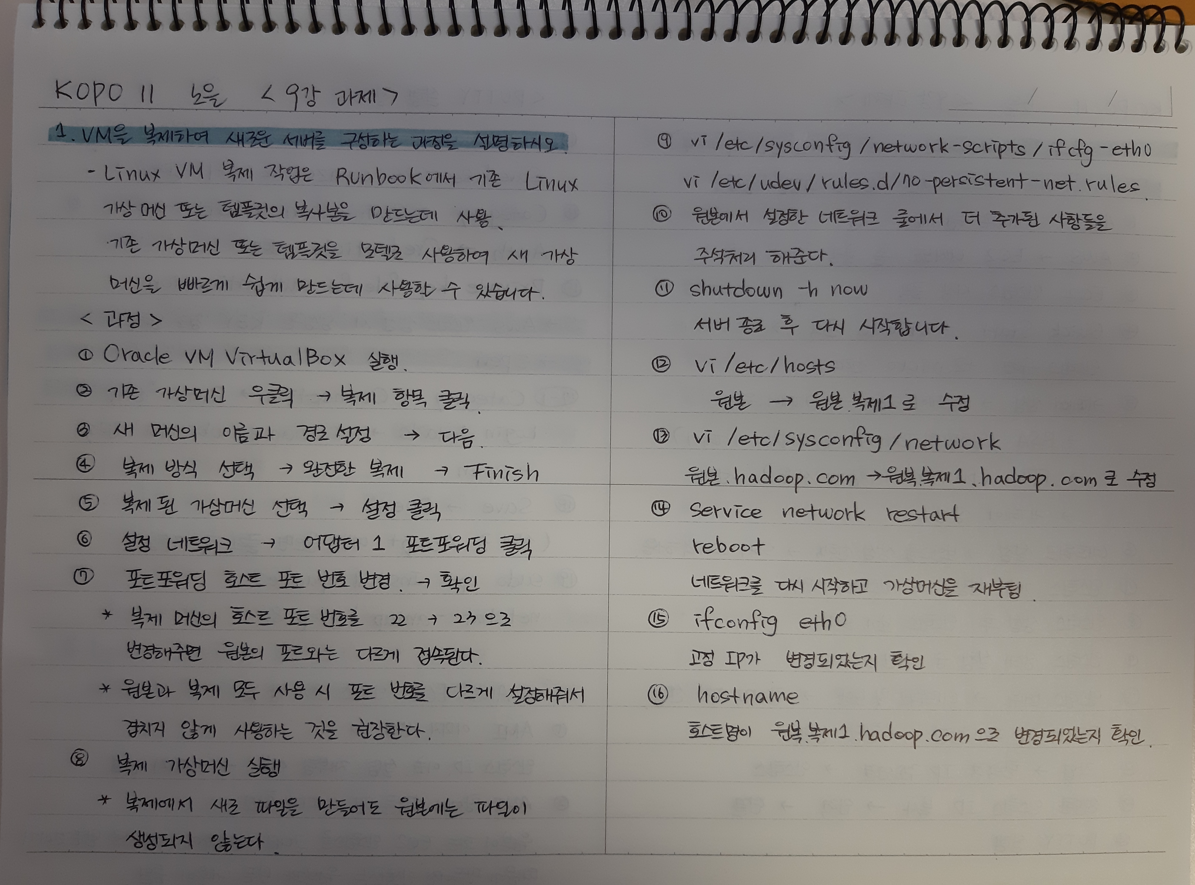 KOPO 11 노을 <9강 과제>
1. VM을 복제하여 새로운 서버를 구성하는 과정을 설명하시오.
- Linux VM 복제 작업은 Runbook에서 기존 Linux
가상 머신 또는 템플릿의 복사본을 만드는데 사용.
기존 가상머신 또는 템플릿을 모델로 사용하여 새 가상
머신을 빠르게 쉽게 만드는데 사용할 수 있습니다.
<과정>
① Oracle VM VirtualBox 실행.
② 기존 가상머신 우클릭 → 복제 항목 클릭.
③ 새 머신의 이름과 경로 설정 → 다음.
④ 복제 방식 선택 → 완전한 복제 → Finish
⑤ 복제된 가상머신 선택 → 설정 클릭
⑥ 설정 네트워크 → 어댑터 1 포트포워딩 클릭
⑦ 포트포워딩 호스트 포트 번호 변경. → 확인
* 복제 머신의 호스트 포트 번호를 22 → 23으로
변경해주면 원본의 포트와는 다르게 접속된다.
* 원본과 복제 모두 사용 시 포트 번호를 다르게 설정해줘서
겹치지 않게 사용하는 것을 권장한다.
⑧ 복제 가상머신 실행
* 복제에서 새로 파일을 만들어도 원본에는 파일이
생성되지 않는다.
⑨ vi /etc/sysconfig/network-scripts/ifcfg-eth0
vi /etc/udev/rules.d/70-persistent-net.rules
⑩ 원본에서 설정한 네트워크 룰에서 더 추가된 사항들을
주석처리 해준다.
⑪ shutdown -h now
서버 종료 후 다시 시작합니다.
⑫ vi /etc/hosts
원본 → 원본.복제1로 수정
⑬ vi /etc/sysconfig/network
원본.hadoop.com → 원본.복제1.hadoop.com로 수정
⑭ service network restart
reboot
네트워크를 다시 시작하고 가상머신을 재부팅.
⑮ ifconfig eth0
고정 IP가 변경되었는지 확인
⑯ hostname
호스트명이 원본.복제1.hadoop.com으로 변경되었는지 확인.